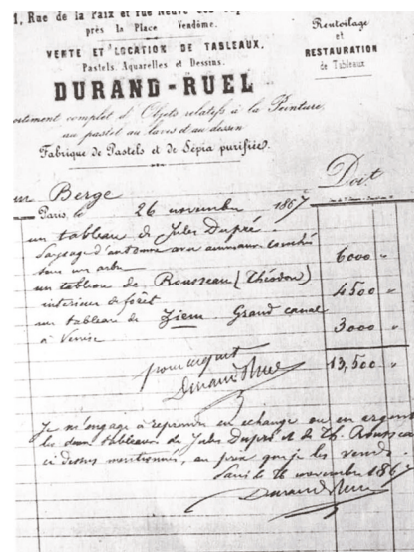 1, Rue de la Paix et rue Neuve des
près la Place Vendôme.
VENTE ET LOCATION DE TABLEAUX,
Pastels, Aquarelles et Dessins.
DURAND-RUEL
Rentoilage
et
RESTAURATION
de Tableaux
ortiment complet d'Objets relatifs à la Peinture,
au pastel au lavis et au dessin
Fabrique de Pastels et de Sépia purifiée.
Doit
ur Berge
Paris, le 26 novembre 1867
un tableau de Jules Dupré.
Paysage d'automne avec animaux couchés
sous un arbre 6000 "
un tableau de Rousseau (Théodore)
intérieur de forêt 4500 "
un tableau de Ziem Grand canal
à Venise 3000 "
pour acquit 13,500 "
Durand Ruel
Je m'engage à reprendre en échange ou en argent
les deux tableaux de Jules Dupré et de Th. Rousseau
ci dessus mentionnés, au prix que je les vends.
Paris le 26 novembre 1867
Durand Ruel